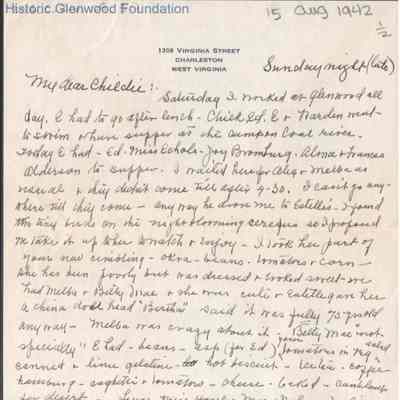 Historic Glenwood Foundation
15 Aug 1942
1/2
1308 VIRGINIA STREET
CHARLESTON
WEST VIRGINIA
Sunday night (late)
My dear Childie:-
Saturday I worked at Glenwood all
day. E had to go after lunch - Chick Ed. E & Harden went
to swim & have supper at the Campon Coal River.
Today E had - Ed - Miss Echols - Joy Bromburg. Alma & Frances
Alderson to supper. I waited here for Alex & Melba as
usual & they didn't come till after 4-30. I can't go any-
where till they come - any way he drove me to Estelle's - I found
this tiny bud on the night blooming cereus so I proposed
to take it up to her to watch & enjoy - I took her part of
your nice - okra - beans - tomatoes & corn -
She has been poorly but was dressed & looked sweet - we
had Melba & Betty Mae & she was cute & Estelle gave her
a china doll head "Bertha" said it was fully 75 years old
anyway - Melba was crazy about it - Betty Mae "not
specially" E had - beans - (for Ed) tomatoes in
& lime gelatine - hot biscuit - coffee
hamburg - & tomatoes - cheese - -
for dessert